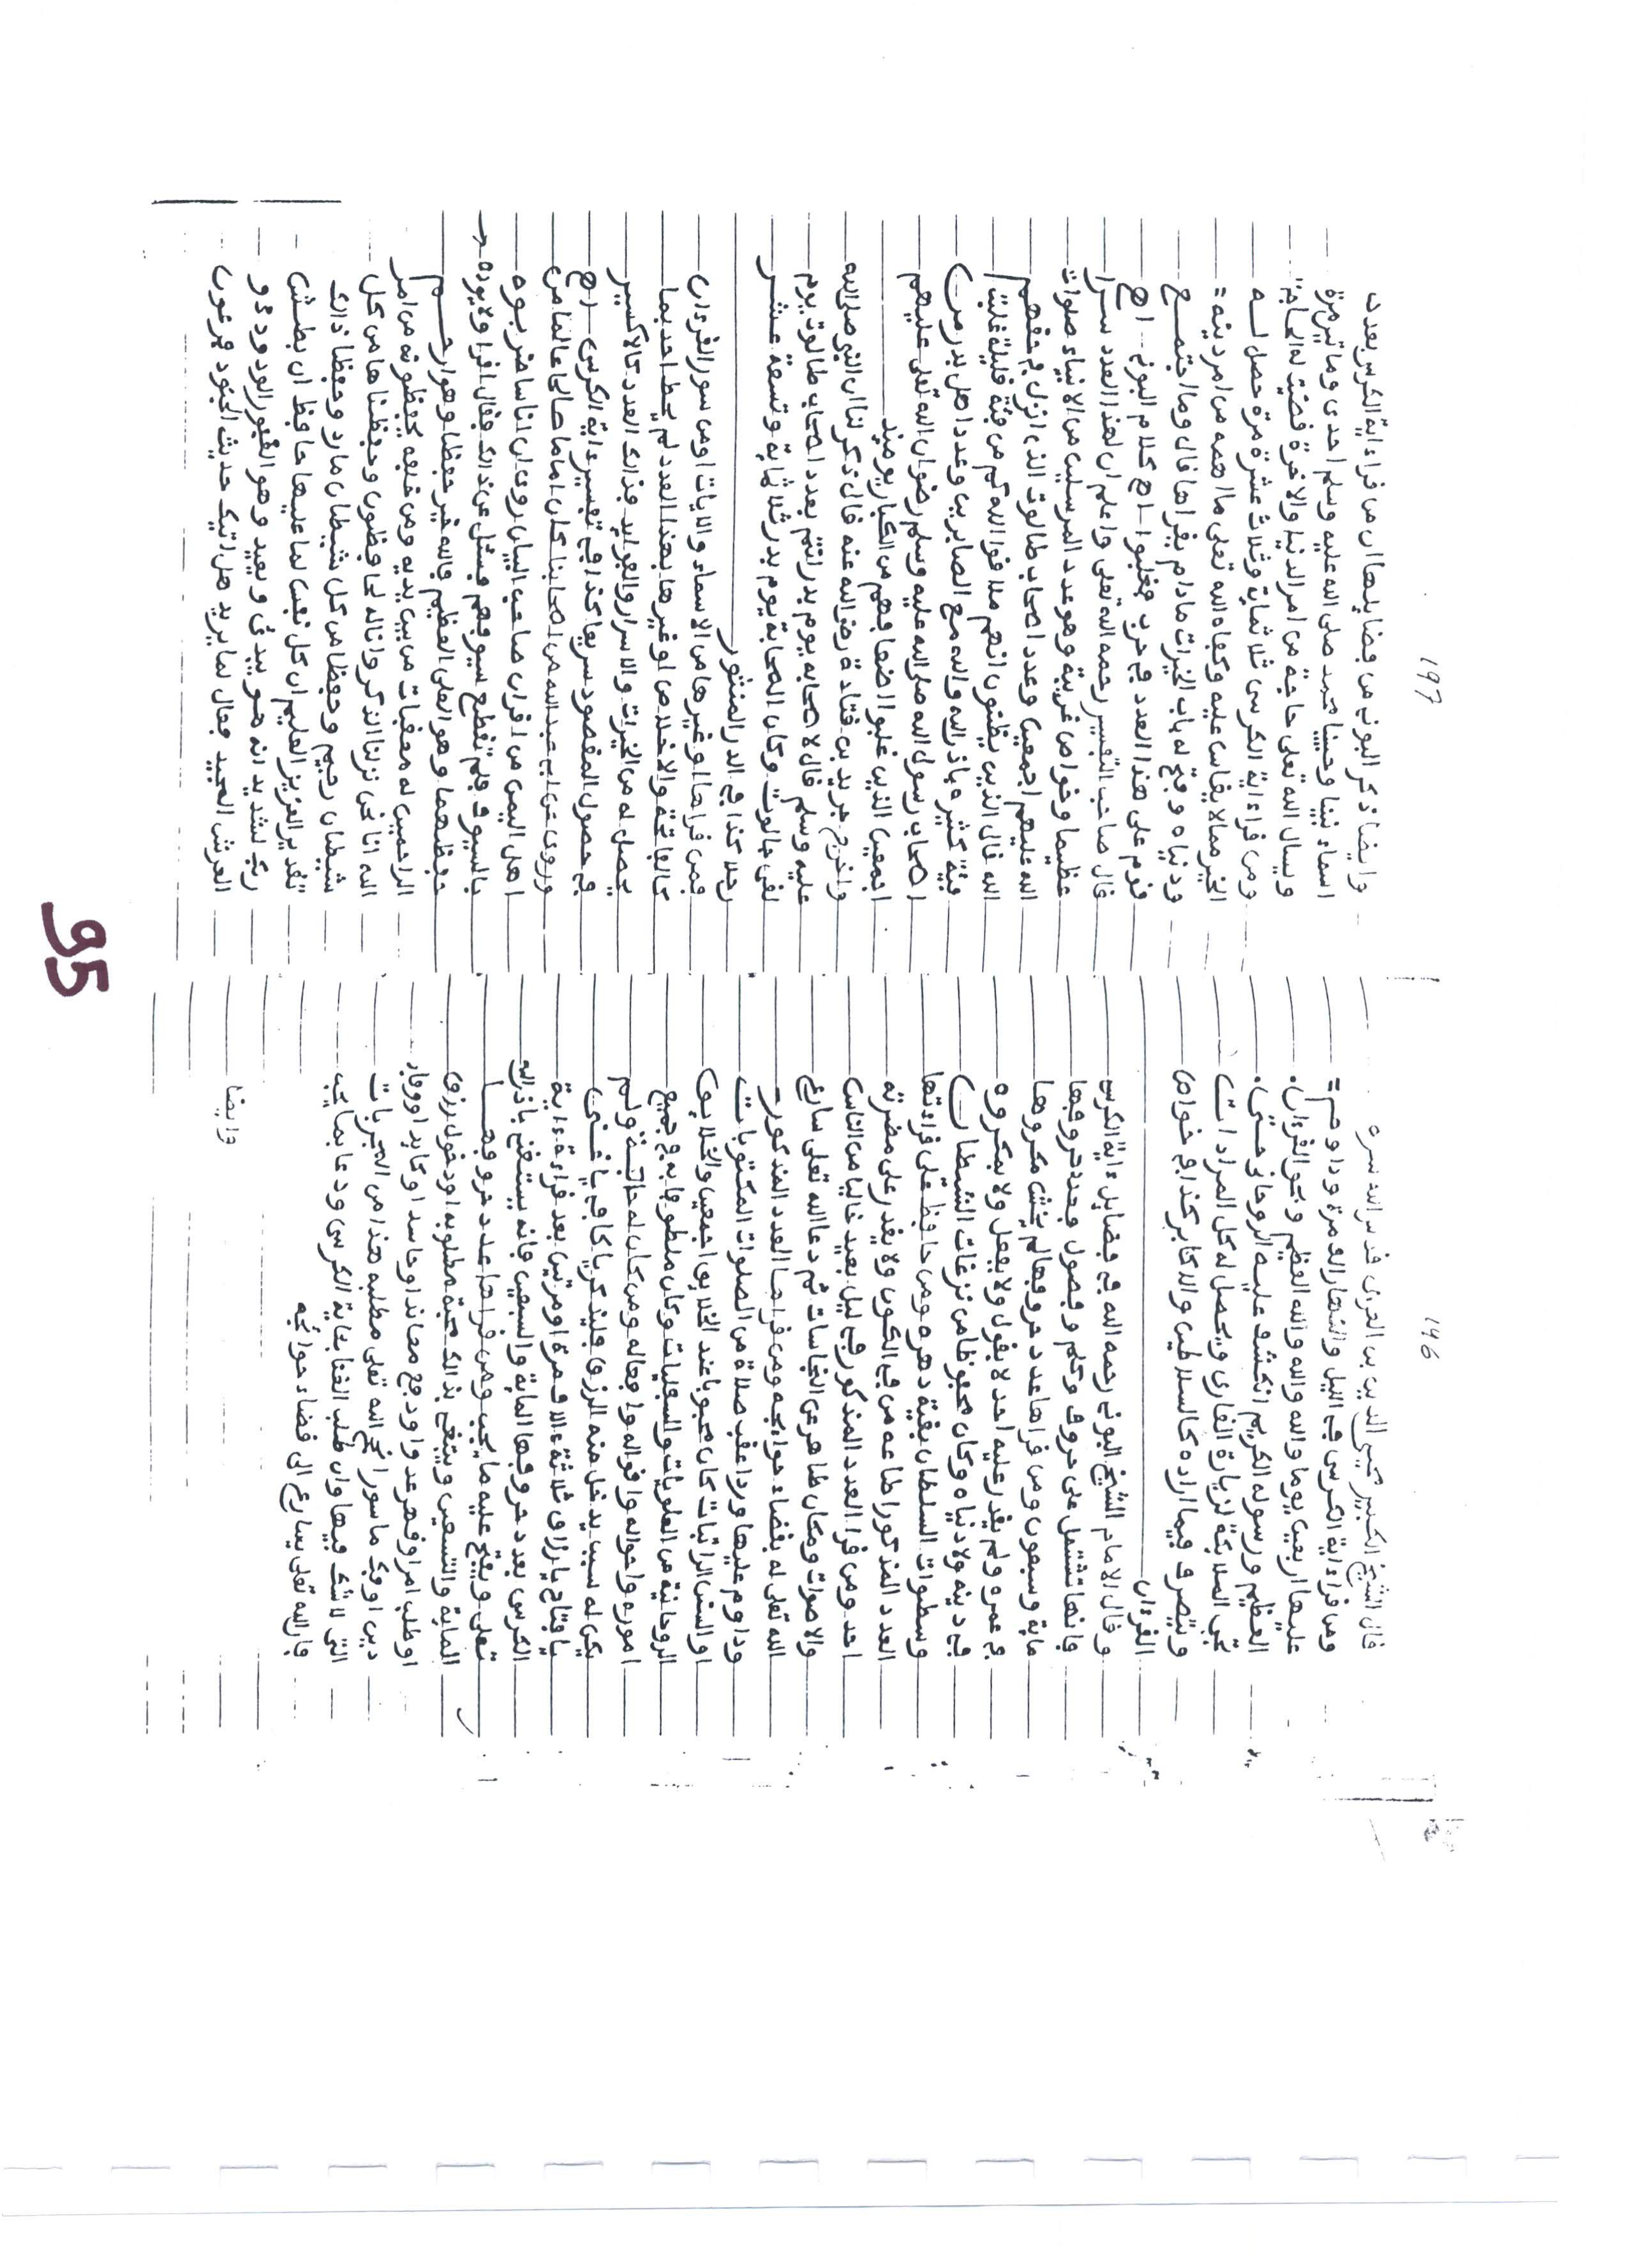 196
قال الشيخ الكبير محيى الدين بن العربى قدس الله سره
ومن قرا ءاية الكرسي في اليل والنهار الف مرة وداوم
عليها اربعين يوما والله والله والله العظيم وبحق القرءان
العظيم ورسوله الكريم انكشف عليه الروحاني حتى
تجي الملايكة لزيارة القارى ويحصل له كل المرادات
ويتصرف فيما اراده كالسلاطين والاكابر كذا في خواص
القرءان
وقال الامام الشيخ البوني رحمه الله في فضايل ءاية الكرسي
فانها تشتمل على حروف وكلم وفصول فعدد حروفها
ماية وسبعون ومن قراها عدد حروفها لم يخش مكروها
في عمره ولم يقدر عليه احد لا بقول ولا بفعل ولا بمكروه
في دينه ولا دنياه وكان محفوظا من نزغات الشيطان
وسطوات السلطان بقية دهره ومن حافظ على قراءتها
العدد المذكور اطاعه من في الكون ولا يقدر على مضرته
احد ومن قرا العدد المذكور في ليل بعيد خاليا من الناس
والاصوات ومكان طاهر من النجاسات ثم دعا الله تعلى سارع
الله تعلى له بقضاء حوايجه ومن قراها العدد المذكور
وداوم عليها وردا عقب صلاة من الصلوات المكتوبات
او السنن الراتبات كان محبوبا عند الخلايق اجمعين والخلايق
الروحانية من العلويات والسفليات وكان ملطوفا به في جميع
اموره واحواله واقواله وافعاله ومن كان له حاجة ولم
يكن له سبب يدخل منه الرزق فليذكر يا كافي يا غني
يا فتاح يا رزاق ثلاثة ءالاف مرة او مرتين بعد قراءة ءاية
الكرسي بعدد حروفها الماية والسبعين فانه يستغني باذن الله
تعلى ويفتح عليه ما يحب ومن قراها عدد حروفها
الماية والسبعين وينتفع بذالك محبة مطلوبه او دخول رزق
او طلب امر او قهر عدو او دفع معاند او حاسد او كايد او وفاء
دين او فك ماسور انجح الله تعلى مطلبه هذا من المجربات
التي لا شك فيها وان طلب الغنا بـءاية الكرسي ودعا بما يحب
فان الله تعلى يسارع الى قضاء حوائجه
وايضا
197
وايضا ذكر البوني من فضايلها ان من قرا ءاية الكرسي بعدد
اسماء نبينا وحبيبنا محمد صلى الله عليه وسلم احدى وماتين مرة
ويسال الله تعلى حاجة من امر الدنيا والاخرة قضيت له الحاجة
ومن قرا ءاية الكرسي ثلاثماية وثلاث عشرة مرة حصل له
الخير ما لا يقاس عليه وكفاه الله تعلى ما اهمه من امر دينه
ودنياه وفتح له باب الخيرات ما دام يقراها قال وما اجتمع
قوم على هذا العدد في حرب فغلبوا اهـ كلام البوني اهـ
قال صاحب التفسير رحمه الله تعلى واعلم ان لهذا العدد سرا
عظيما وخواص غريبة وهو عدد المرسلين من الانبياء صلوات
الله عليهم اجمعين وعدد اصحاب طالوت الذي انزل في حقهم
الله قال الذين يظنون انهم ملاقوا الله كم من فية قليلة غلبت
فية كثيرة باذن الله والله مع الصابرين وعدد اهل بدر من
اصحاب رسول الله صلى الله عليه وسلم رضوان الله تعلى عليهم
اجمعين الذين غلبوا اضعافهم من الكبار يوميذ
واخرج جرير بن قتادة رضي الله عنه قال ذكر لنا ان النبي صلى الله
عليه وسلم قال لاصحابه يوم بدر انتم بعدد اصحاب طالوت يوم
لقي جالوت وكان الصحابة يوم بدر ثلاثماية وتسعة عشر
رجلا كذا في الدر المنثور
فمن قراها او غيرها من الاسماء والايات او من سور القرءان
كالفاتحة والاخلاص او غيرها بهذا العدد لم يحط احد بما
يحصل له من الخيرات والاسرار والفوايد فذالك العدد كالاكسير
في حصول المقصود سريعا كذا في تفسير ءاية الكرسي اهـ
وروي عن ابي عبد الله من اصحابنا كان اماما صالحا عالما من
اهل اليمن من اقران صاحب البيان روي ان اناسا ضربوه
بالسيوف فلم تقطع سيوفهم فسئل عن ذالك فقال اقرا ولا يوده
حفظهما وهو العلي العظيم فالله خير حفظا وهو ارحم
الراحمين له معقبات من بين يديه ومن خلفه يحفظونه من امر
الله انا نحن نزلنا الذكر وانا له لحافظون وحفظناها من كل
شيطان رجيم وحفظا من كل شيطان مارد وحفظا ذالك
تقدير العزيز العليم ان كل نفس لما عليها حافظ ان بطش
ربك لشديد انه هو يبدئ ويعيد وهو الغفور الودود ذو
العرش المجيد فعال لما يريد هل اتيك حديث الجنود فرعون
95